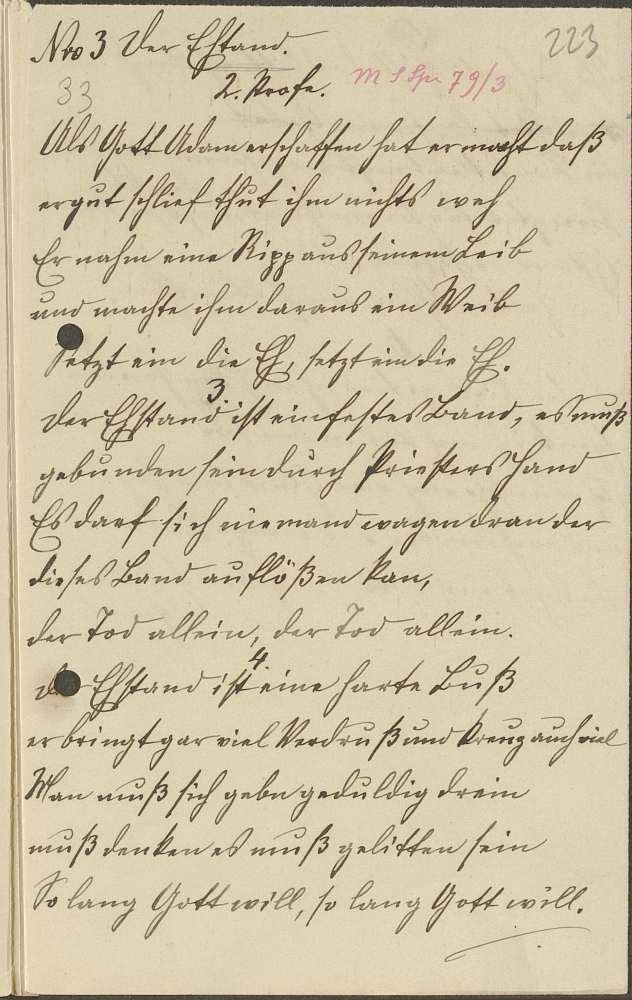 Nro 3 Der Ehstand.
223
33
2. Strofe.
M S Spr 79/3
Als Gott Adam erschaffen hat er macht daß
er gut schlief thut ihm nichts weh
Er nahm eine Ripp aus seinem Leib
und machte ihm daraus ein Weib
Setzt ein die Eh, setzt ein die Eh.
3.
Der Ehstand ist ein festes Band, es muß
gebunden sein durch Priesters Hand
Es darf sich niemand wagen dran der
dieses Band auflößen kan,
der Tod allein, der Tod allein.
4.
der Ehstand ist eine harte Buß
er bringt gar viel Verdruß und Kreuz auch viel
Man muß sich gebn geduldig drein
muß denken es muß gelitten sein
So lang Gott will, so lang Gott will.